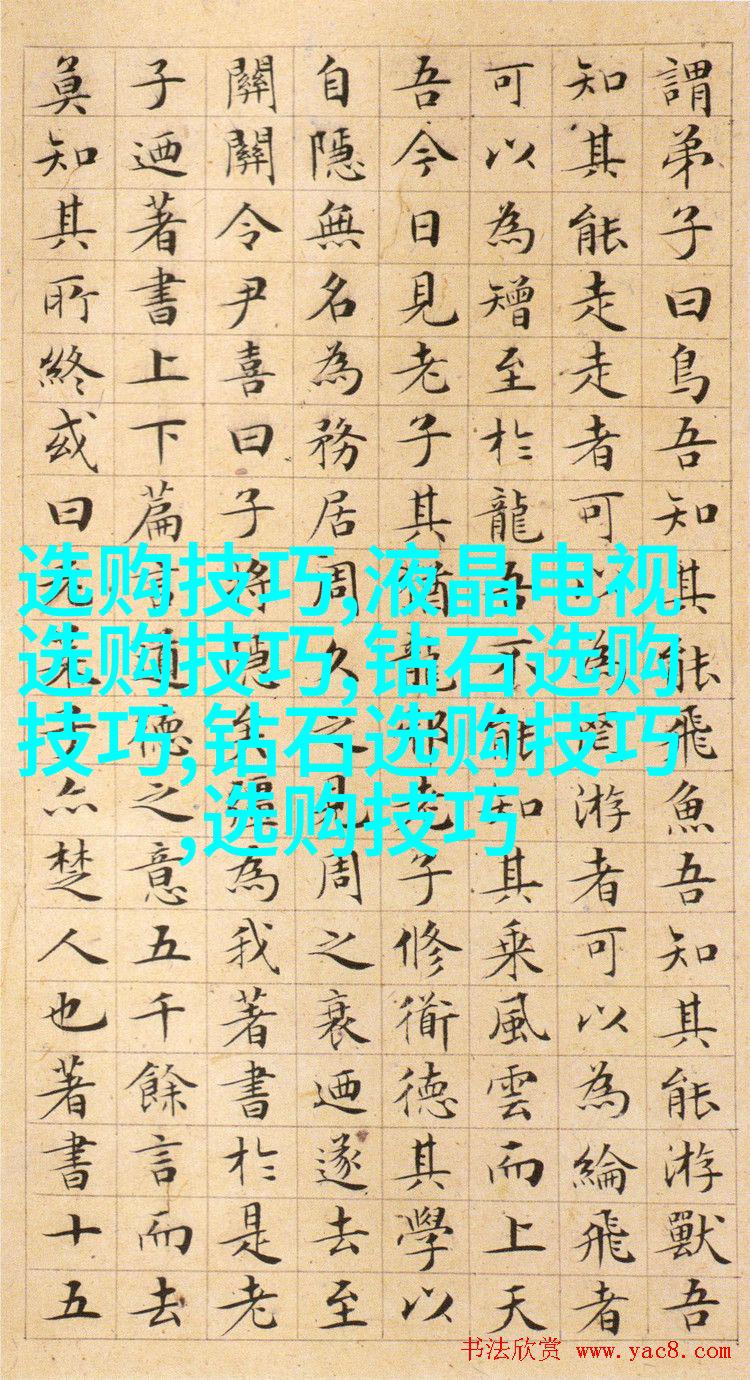 謂弟子曰鳥吾知其能飛魚吾知其能游獸吾
知其能走走者可以為罔游者可以為綸飛者
可以為矰至於龍吾不能知其乘風雲而上天
吾今日見老子其猶龍邪老子修衜德其學以
自隱無名為務居周久之見周之衰迺遂去至
關關令尹喜曰子將隱矣彊為我著書於是老
子迺著書上下篇言道德之意五千餘言而去
莫知其所終或曰老萊子亦楚人也著書十五
选购技巧,液晶电视
选购技巧,钻石选购
技巧,钻石选购技巧
,选购技巧
书法欣赏 www.yac8.com